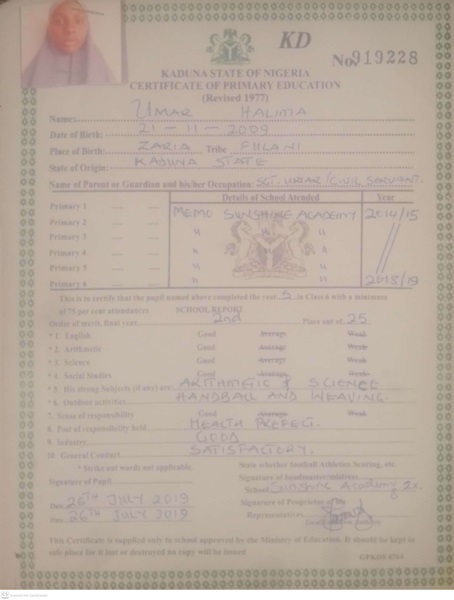 KD
No 919228
KADUNA STATE OF NIGERIA
CERTIFICATE OF PRIMARY EDUCATION
(Revised 1977)
Name: UMAR HALIMA
Date of Birth: 21-11-2009
Place of Birth: ZARIA Tribe FULANI
State of Origin: KADUNA STATE
Name of Parent or Guardian and his/her Occupation: SGT. UMAR/CIVIL SERVANT.
Details of School Attended Year
Primary 1 MEMO SUNSHINE ACADEMY 2014/15
Primary 2 " " "
Primary 3 " "
Primary 4 " "
Primary 5 " "
Primary 6 " " 2018/19
This is to certify that the pupil named above completed the year 5 in Class 6 with a minimum
of 75 per cent attendances SCHOOL REPORT
Order of merit, final year. 2nd Place out of 25
* 1. English Good Average Weak
* 2. Arithmetic Good Average Weak
* 3. Science Good Average Weak
* 4. Social Studies Good Average Weak
* 5. His strong Subjects (if any) are: ARITHMETIC & SCIENCE
* 6. Outdoor activities HANDBALL AND WEAVING.
7. Sense of responsibility Good Average Weak
8. Post of responsibility held HEALTH PREFECT.
9. Industry GOOD
10. General Conduct SATISFACTORY.
* Strike out words not applicable. State whether football Athletics Scouting, etc.
Signature of Pupil Signature of headmaster/
School Sunshine Academy
Date 26TH JULY 2019 Signature of Proprietor
Date 26TH JULY 2019 Representative
This Certificate is supplied only in school approved by the Ministry of Education. It should be kept in
safe place for it lost or destroyed no copy will be issued